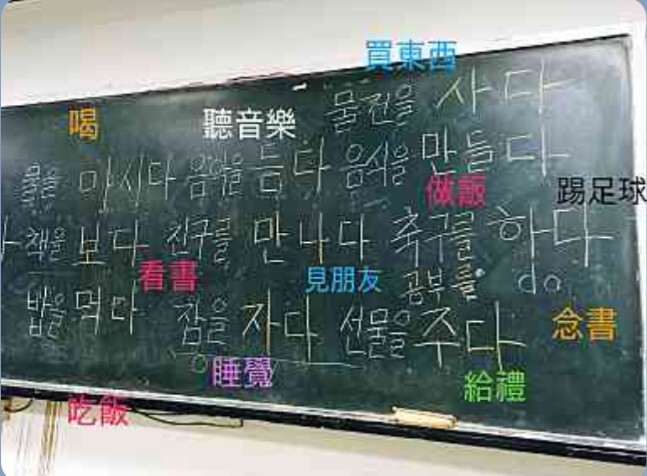 買東西
물건을 사다
喝 聽音樂
물을 마시다 음악을 듣다 음식을 만들다
做飯 踢足球
책을 보다 친구를 만나다 축구를 하다
看書 見朋友 공부를 do
밥을 먹다 잠을 자다 선물을 주다
念書
睡覺 給禮
吃飯